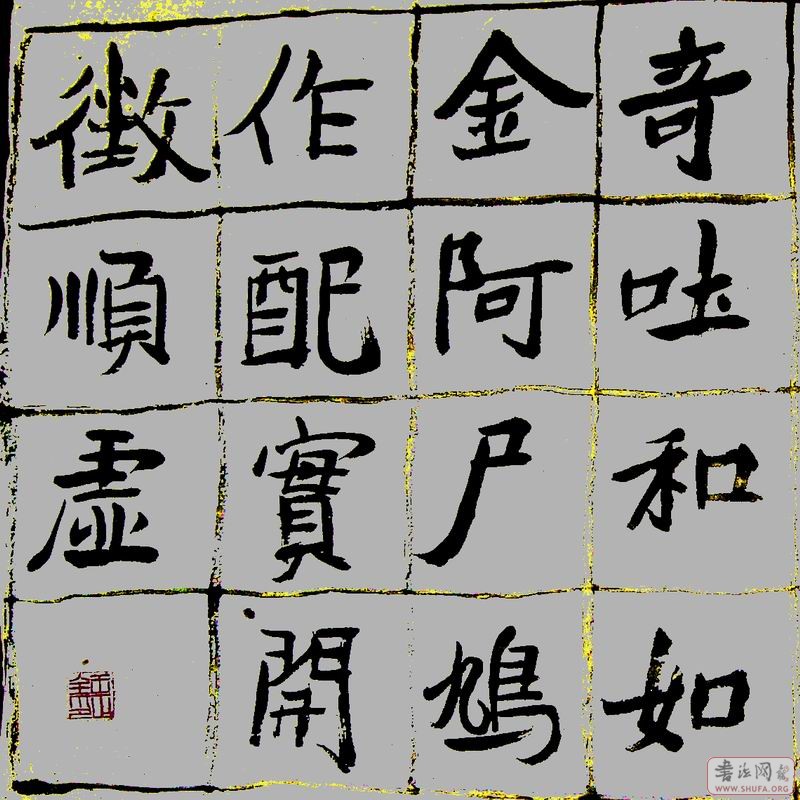 奇吐和如
金阿尸鳩
作配實開
徴順虛
書法网
WWW.SHUFA.ORG